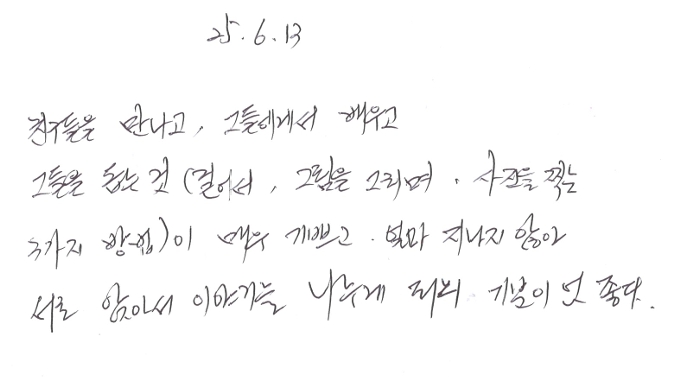 25.6.13
친구들을 만나고, 그들에게서 배우고
그들을 찾는 것 (걸어서, 그림을 그리며, 사진을 찍는
3가지 방법)이 매우 기쁘고. 얼마 지나지 않아
서로 앉아서 이야기를 나누게 되어 기분이 더 좋다.